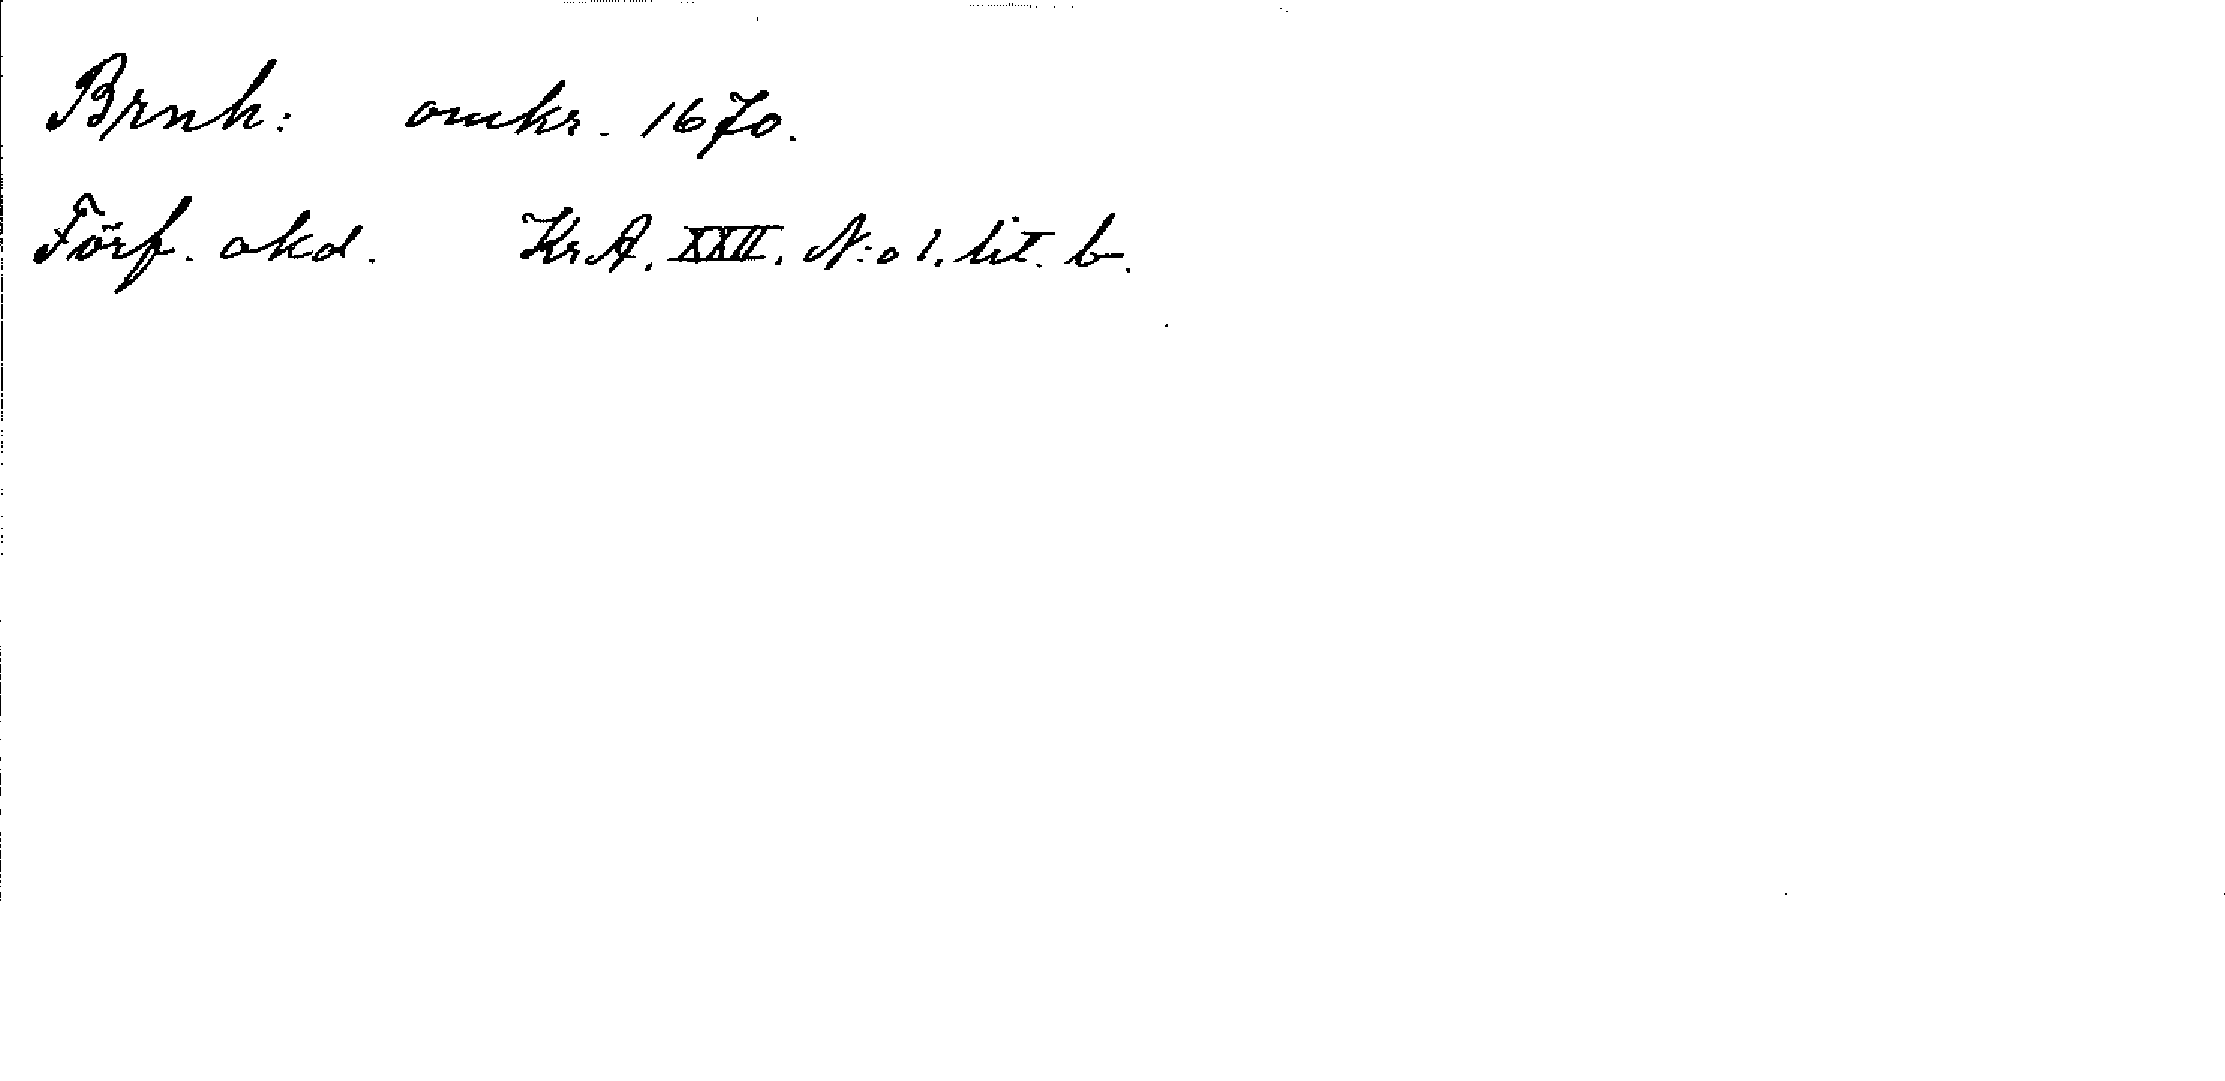 Brnh: omkr. 1670.
Förf. okd. KrA. XXII. N:o 1. lit. b.